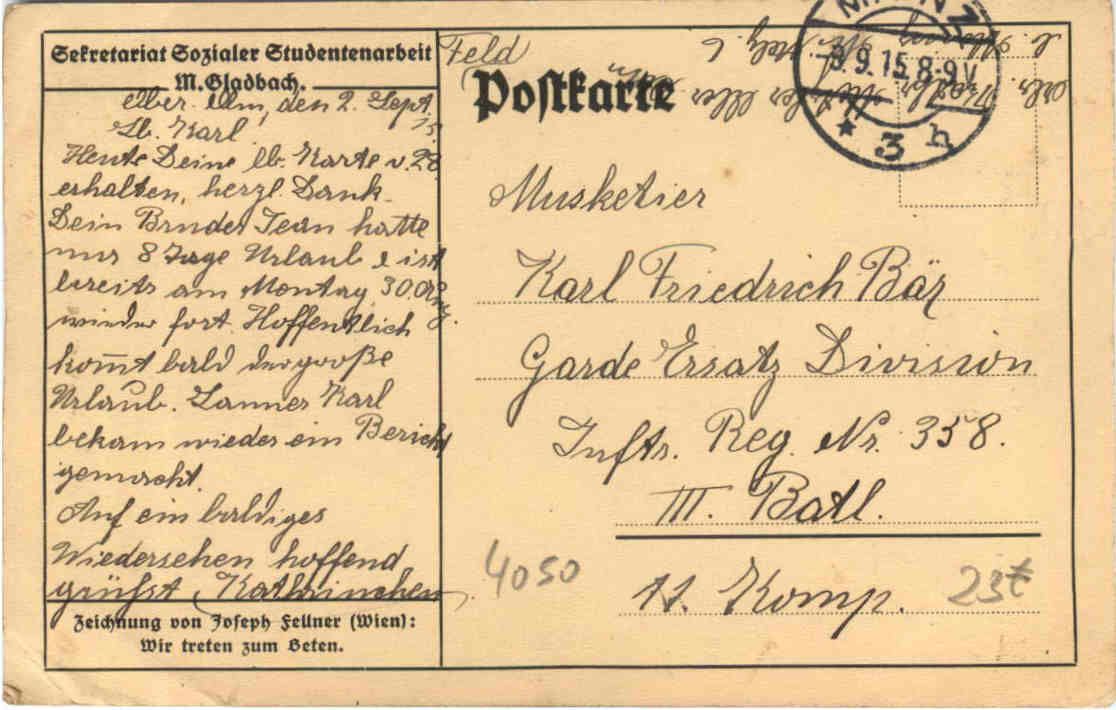 Sekretariat Sozialer Studentenarbeit
M. Gladbach.
Ober-Olm, den 2. Sept. 15
Lb. Karl
Heute Deine lb. Karte v. 28.
erhalten, herzl. Dank.
Dein Bruder Jean hatte
nur 8 Tage Urlaub & ist
bereits am Montag 30. Aug.
wieder fort. Hoffentlich
kom̄t bald der große
Urlaub. Karl
bekam wieder ein Bericht
gemacht.
Auf ein baldiges
Wiedersehen hoffend
grüßt Kathrinchen.
Zeichnung von Joseph Fellner (Wien):
Wir treten zum Beten.
Feld
Postkarte
MAINZ
3.9.15.8-9V
* 3 h
Musketier
Karl Friedrich Bär
Garde Ersatz Division
Inftr. Reg. Nr. 358.
III. Batl.
11. Komp.
4050
23€